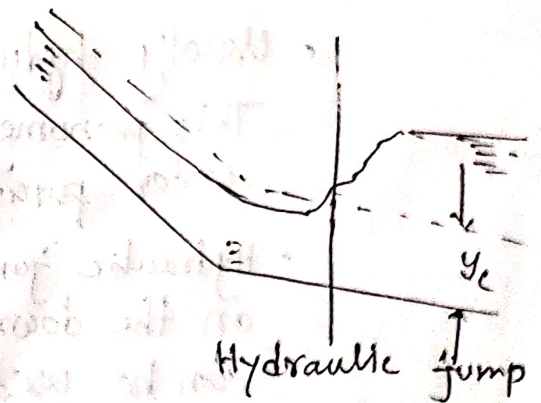 y_c
Hydraulic jump